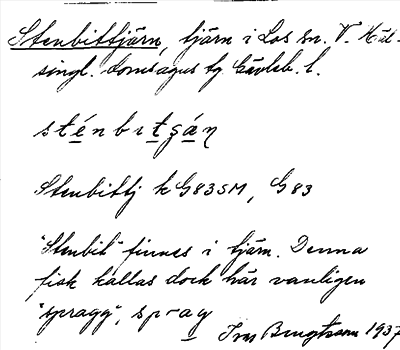 Stenbittjärn, tjärn i Los sn. V. Häl-
singl. domsagas tg Gävleb. l.
sténbıtʂáɳ
Stenbittj k G83SM, G83
"Stenbit" finnes i tjärn. Denna
fisk kallas dock här vanligen
"spragg", sprag
Ivar Bengtsson 1937